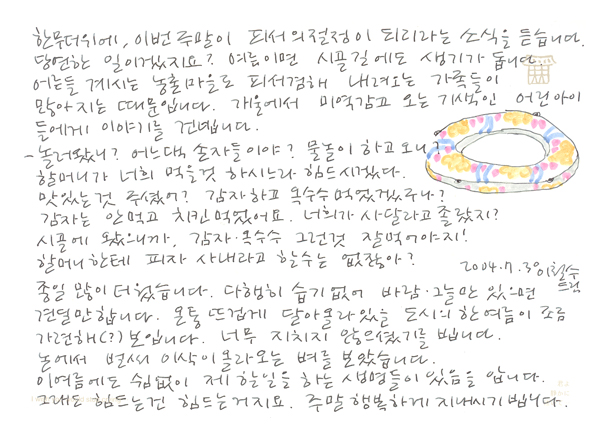 한무더위에, 이번 주말이 피서의 절정이 되리라는 소식을 듣습니다.
당연한 일이겠지요? 여름이면 시골길에도 생기가 돕니다
어른들 계시는 농촌마을로 피서겸해 내려오는 가족들이
많아지는 때문입니다. 개울에서 미역감고 오는 기색인 어린아이
들에게 이야기를 건넵니다.
- 놀러왔니? 어느댁 손자들이야? 물놀이 하고 오니?
할머니가 너희 먹을것 하시느라 힘드시겠다.
맛있는것 주셨어? 감자하고 옥수수 먹었겠구나?
감자는 안먹고 치킨 먹었어요. 너희가 사달라고 졸랐지?
시골에 왔으니까, 감자·옥수수 그런것 잘먹어야지!
할머니한테 피자 사내라고 할수는 없잖아?
2004.7.30 이철수 드림
종일 많이 더웠습니다. 다행히 습기 없어 바람·그늘만 있으면
견딜만 합니다. 온통 뜨겁게 달아올라있을 도시의 한여름이 조금
가련해(?) 보입니다. 너무 지치지 않으셨기를 빕니다.
논에서 벌써 이삭이 올라오는 벼를 보았습니다.
이여름에도 쉼없이 제 할일을 하는 생명들이 있음을 압니다.
그래도 힘드는건 힘드는거지요. 주말 행복하게 지내시기 빕니다.